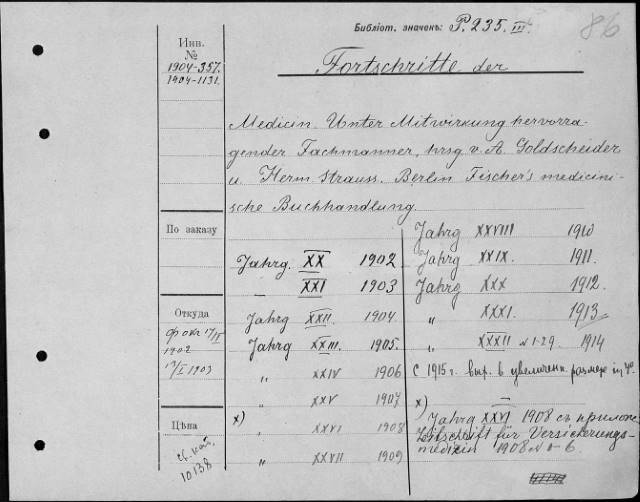 Библіот. значекъ: P. 235. III
86
Инв.
№
1904-357.
1904-1131.
Fortschritte der
Medicin. Unter Mitwirkung hervorra-
gender Fachmänner, hrsg. v. A. Goldscheider
u. Herm. Strauss. Berlin Fischer's medicini-
sche Buchhandlung.
По заказу
Jahrg. XX 1902
XXI 1903
Откуда
1902
1903
Jahrg XXII. 1904.
Jahrg XXIII. 1905.
„ XXIV 1906
„ XXV 1907
Цѣна
x) „ XXVI 1908
„ XXVII 1909
10138
Jahrg XXVIII 1910
Jahrg XXIX. 1911.
Jahrg XXX 1912.
„ XXXI. 1913
„ XXXII № 1-29. 1914
с 1915 г. вых. в увеличен. размере
x)
Jahrg XXVI 1908 съ прилож.
Zeitschrift für Versicherungs-
medizin 1908 № 1-6.